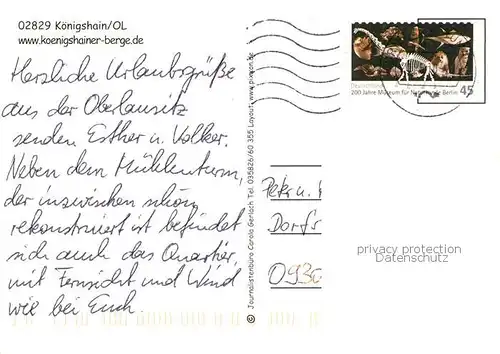 02829 Königshain/OL
www.koenigshainer-berge.de
Herzliche Urlaubsgrüße
aus der Oberlausitz
senden Esther u. Volker.
Neben dem Mühlenturm,
der inzwischen schön
rekonstruiert ist befindet
sich auch das Quartier,
mit Fernsicht und Wind
wie bei Euch.
© Journalistenbüro Carola Gerlach Tel. 035826/60 355 Layout: www.
200 Jahre Museum für Naturkunde Berlin
45
Peter u.
Dorfs
093
privacy protection
Datenschutz